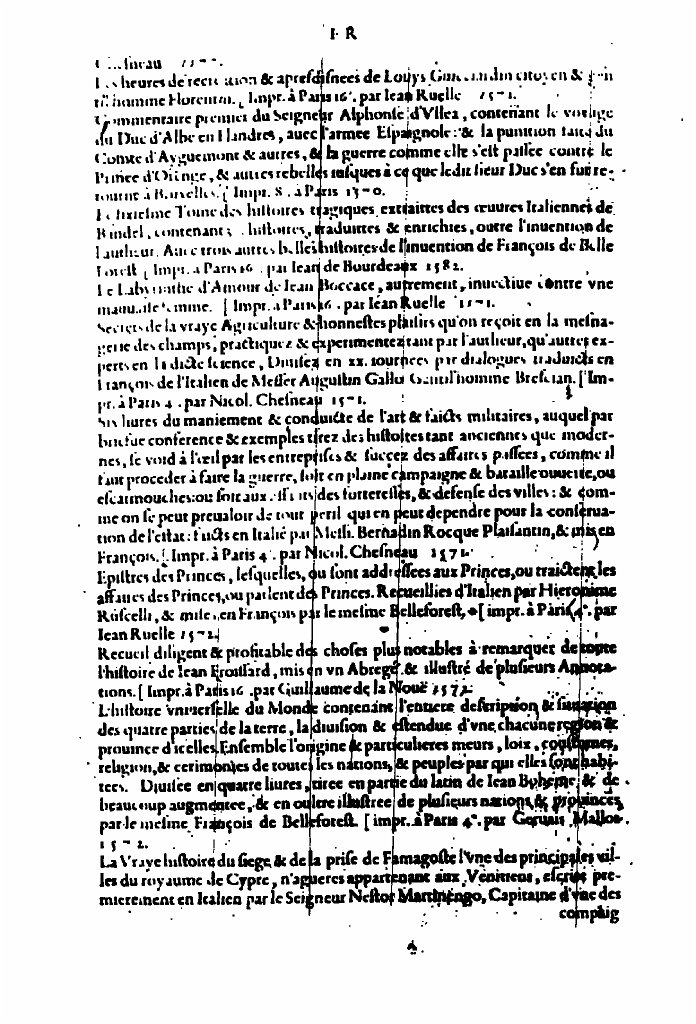 F R
Les heures de recreation & apresdisnees de Louys Guicciardin citoyen & gen
til homme Florentin. [ Impr. à Paris 16. par Iean Ruelle 1571.
Commentaire premier du Seigneur Alphonse d'Vllea, contenant le voyage
du Duc d'Albe en Flandres, auec l'armee Espaignole: & la punition faite du
Comte d'Ayguemont & autres, & la guerre comme elle s'est passee contre le
Prince d'Orenge, & autres rebelles iusques à ce que ledit sieur Duc s'en fut re-
tourné à Bruxelles. [ Impr. 8. à Paris 1570.
Le sixiesme Tome des histoires tragiques, extraittes des œuures Italiennes de
Bandel, contenant histoires, traduittes & enrichies, outre l'inuention de
l'autheur. Auec trois autres belles histoires de l'inuention de François de Belle
Forest [ Impr. à Paris 16. par Iean de Bourdeaux 1582.
Le Labyrinthe d'Amour de Iean Boccace, autrement, inuectiue contre vne
mauuaise femme. [ Impr. à Paris 16. par Iean Ruelle 1571.
Secrets de la vraye Agriculture & honnestes plaisirs qu'on reçoit en la mesna-
gerie des champs, practiquez & experimentez tant par l'autheur, qu'autres ex-
perts en la dicte science, Diuisez en xx. iournees par dialogues traduicts en
François de l'Italien de Messer Augustin Gallo Gentil'homme Brescian. [ Im-
pr. à Paris 4. par Nicol. Chesneau 1571.
Six liures du maniement & conduicte de l'art & faicts militaires, auquel par
briefue conference & exemples tirez des histoires tant anciennes que moder-
nes, se void à l'œil par les entreprises & succez des affaires passees, comme il
faut proceder à faire la guerre, soit en plaine campaigne & bataille ouuerte, ou
escarmouches: ou soit aux assauts des forteresses, & defense des villes: & com-
me on se peut preualoir de tout peril qui en peut dependre pour la conserua-
tion de l'estat: faicts en Italié par Mess. Bernadin Rocque Plaisantin, & mis en
François. [ Impr. à Paris 4°. par Nicol. Chesneau 1571.
Epistres des Princes, lesquelles, ou sont addressees aux Princes, ou traictent les
affaires des Princes, ou parlent des Princes. Recueillies d'Italien par Hieronime
Ruscelli, & mises en François par le mesme Belleforest, [ impr. à Paris 4°. par
Iean Ruelle 1572.
Recueil diligent & profitable des choses plus notables à remarquer de toute
l'histoire de Iean Froissard, mis en vn Abregé & illustré de plusieurs Annota-
tions. [ Impr. à Paris 16. par Guillaume de la Nouë 1572.
L'histoire vniuerselle du Monde contenant l'entiere description & situation
des quatre parties de la terre, la diuision & estendue d'vne chacune region &
prouince d'icelles. Ensemble l'origine & particulieres meurs, loix, coustumes,
religion, & cerimonies de toutes les nations, & peuples par qui elles sont habi-
tees. Diuisee en quatre liures, tiree en partie du latin de Iean Boheme, & de
beaucoup augmentee, & en oultre illustree de plusieurs nations, & prouinces
par le mesme François de Belleforest. [ impr. à Paris 4°. par Geruais Mallot.
1572.
La Vraye histoire du siege & de la prise de Famagoste l'vne des principales vil-
les du royaume de Cypre, n'agueres appartenant aux Venitiens, escrite pre-
mierement en Italien par le Seigneur Nestor Martinengo, Capitaine d'vne des
compaig